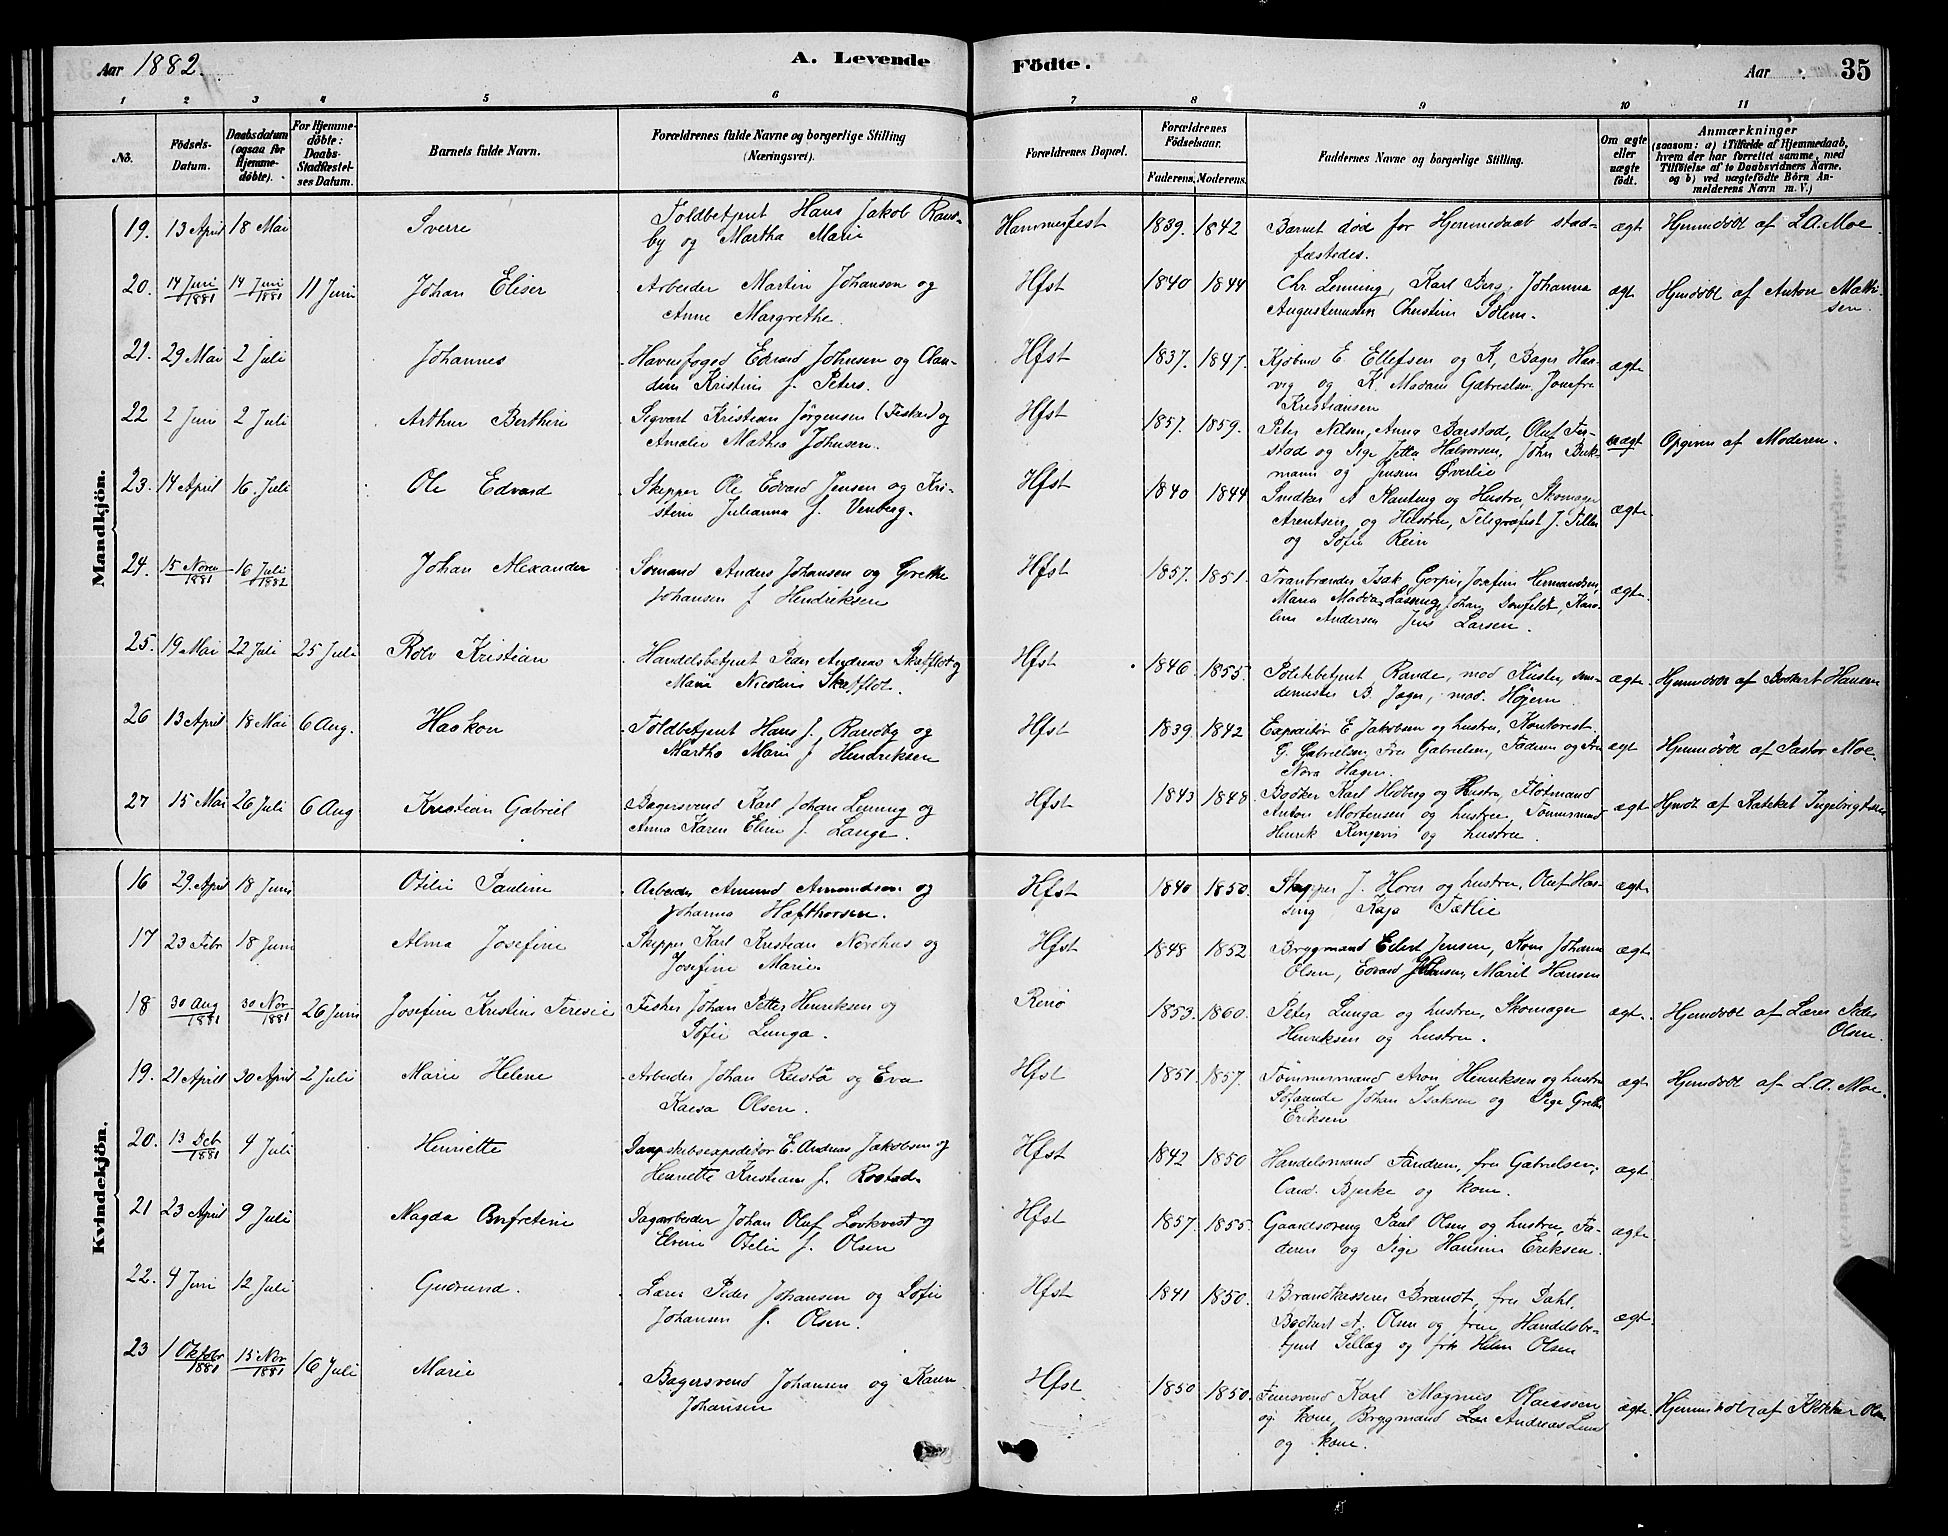 Aar 1882.
A. Levende
Födte.
Aar
35
1 2 3 4 5 6 7 8 9 10 11
No.
Födsels-Datum.
Daabsdatum (ogsaa for Hjemmedöbte).
For Hjemmedöbte: Daabs-Stadfæstelses Datum.
Barnets fulde Navn.
Forældrenes fulde Navne og borgerlige Stilling (Næringsvei).
Forældrenes Bopæl.
Forældrenes Födselsaar.
Faderens. Moderens.
Faddernes Navne og borgerlige Stilling.
Om ægte eller uægte födt.
Anmærkninger (saasom: a) i Tilfælde af Hjemmedaab, hvem der har forrettet samme, med Tilföielse af to Daabsvidners Navne, og b) ved uægtefödte Börn Anmelderens Navn m. V.)
Mandkjön.
19. 13 April 18 Mai Sverre Toldbetjent Hans Jakob Rans-
by og Martha Marie Hammerfest 1839. 1842 Barnet död før Hjemmedaab stad-
fæstedes. ægt Hjemdöbt af L.A. Moe
20. 14 Juni 1881 14 Juni 1881 11 Juni Johan Eliser Arbeider Martin Johansen og
Anne Margrethe. Hfst 1840 1844 Chr Lenning, Karl Berg, Johanna
Augustinussen Christine Solem. ægt Hjemdöbt af Anton Mathi-
sen.
21. 29 Mai 2 Juli Johannes Havnefoged Edvard Johnsen og Clau-
dine Kristine f. Peters. Hfst 1837. 1847. Kjöbmd E. Ellefsen og K, Bager Han-
vig og K. Madam Gabrielsen, Jomfru
Kristiansen ægt
22 2 Juni 2 Juli Arthur Berthin Sigvart Kristian Jörgensen (Fisker) og
Amalie Mathea Johnsen. Hfst 1857. 1859. Peter Nilsen, Anna Barstad, Oluf
og Pige Jetta Halvorsen, John
og Jensen Överlie uægt Opgiven af Moderen.
23. 14 April 16. Juli Ole Edvard Skipper Ole Edvard Jensen og Kri-
stine Julianna f. Venberg. Hfst 1840 1844 Snedker A Hanting og Hustru, Skomager
Arentsen og Hustru, Telegrafist J. Tiller
og Sofie Rein ægt
24. 15 Novr 1881 16 Juli 1882 Johan Alexander Sömand Anders Johansen og Grethe
Johansen f Hendriksen Hfst 1857. 1851. Tranbrænder Isak Gorpi, Josefine Hermandsen,
Maria Madda, Johan Karo-
line Andersen Jens Larsen. ægt
25. 19 Mai 22 Juli 25 Juli Rolv Kristian Handelsbetjent Peder Andreas Skatflot og
Marie Nicoline Skatflot. Hfst 1846. 1855. Politibetjent Rande, mad Küster, sme-
demester B. Jager, mad. Högem. ægt Hjemdöbt af Bookert Hansen
26 13 April 18 Mai 6 Aug. Haakon Toldbetjent Hans J. Randby og
Martha Marie f Hendriksen Hfst 1839 1842 Expeditör E Jakobsen og hustru,
G. Gabrielsen, Fru Gabrielsen, Faderen og
Nora Hagen. ægt Hjemdöbt af Pastor Moe
27 15 Mai 26 Juli 6 Aug Kristian Gabriel Bagersvend Karl Johan Lenning og
Anna Karen Eline f. Lange. Hfst 1843 1848. Bödker Karl Hedberg og Hustru, Flötmand
Anton Mortensen og hustru, Tömmermand
Henrik og hustru. ægt. Hjmdt af Kateket Ingebrigtsen
Kvindekjön.
16 29. April 18 Juni Otilie Pauline Arbeider Amund Amundsen og
Johanna Hæfthorsen. Hfst 1840 1850. Skipper J. Horn og hustru, Oluf Has-
sing, Kaja Tætlie ægt
17 23 Febr 18 Juni Alma Josefine Skipper Karl Kristian Nordhus og
Josefine Marie. Hfst 1848 1852 Brygmand Eilert Jensen, Kone Johanna
Olsen, Edvard Johansen, Marit Hansen ægt
18 30 Aug 1881 30 Nov 1881 26 Juni Josefine Kristine Teresie Fisker Johan Petter Henriksen og
Sofie Lunga. Renö 1853. 1860. Peter Lunga og hustru, Skomager
Henriksen og hustru. ægt. Hjemdöbt af Lærer Peder
Olsen.
19. 21 April 30 April 2 Juli Marie Helene Arbeider Johan Rustö og Eva
Kaisa Olsen. Hfst 1851. 1857. Tömmermand Aron Henriksen og hustru
Söfarende Johan Isaksen og Pige Grethe
Eriksen ægt Hjemdöbt af L.A. Moe.
20. 13 Deb 1881 4 Juli Henriette Dampskibsexpeditör E. Andreas Jakobsen og
Henriette Kristiane f. Rostad. Hfst 1842 1850 Handelsmand Tandrem, fru Gabrielsen,
Cand. Bjerke og kone. ægt
21 23 April 9 Juli Magda Onfretine Dagarbeider Johan Oluf Lovkvest og
Elvine Otelie f. Olsen Hfst 1857. 1855. Gaardsdreng Paul Olsen og hustru, Fa-
deren og Pige Hansine Eriksen. ægt
22. 4 Juni 12 Juli Gudrund. Lærer Peder Johansen og Sofie
Johansen f. Olsen. Hfst 1841 1850. Brandkasserer Brandt, fru Dahl,
A. Olsen og frue, Handelsbe-
tjent Sellæg og frk Helen Olsen ægt.
23 1 Oktobr 1881 15 Nov 1881 16 Juli Marie Bagersvend Johansen og Karen
Johansen Hfst 1850 1850. Karl Magnus Olaissen
og kone, Brygmand Andreas Lund
og kone. ægte. Hjemmedöbt af Klokker Olsen